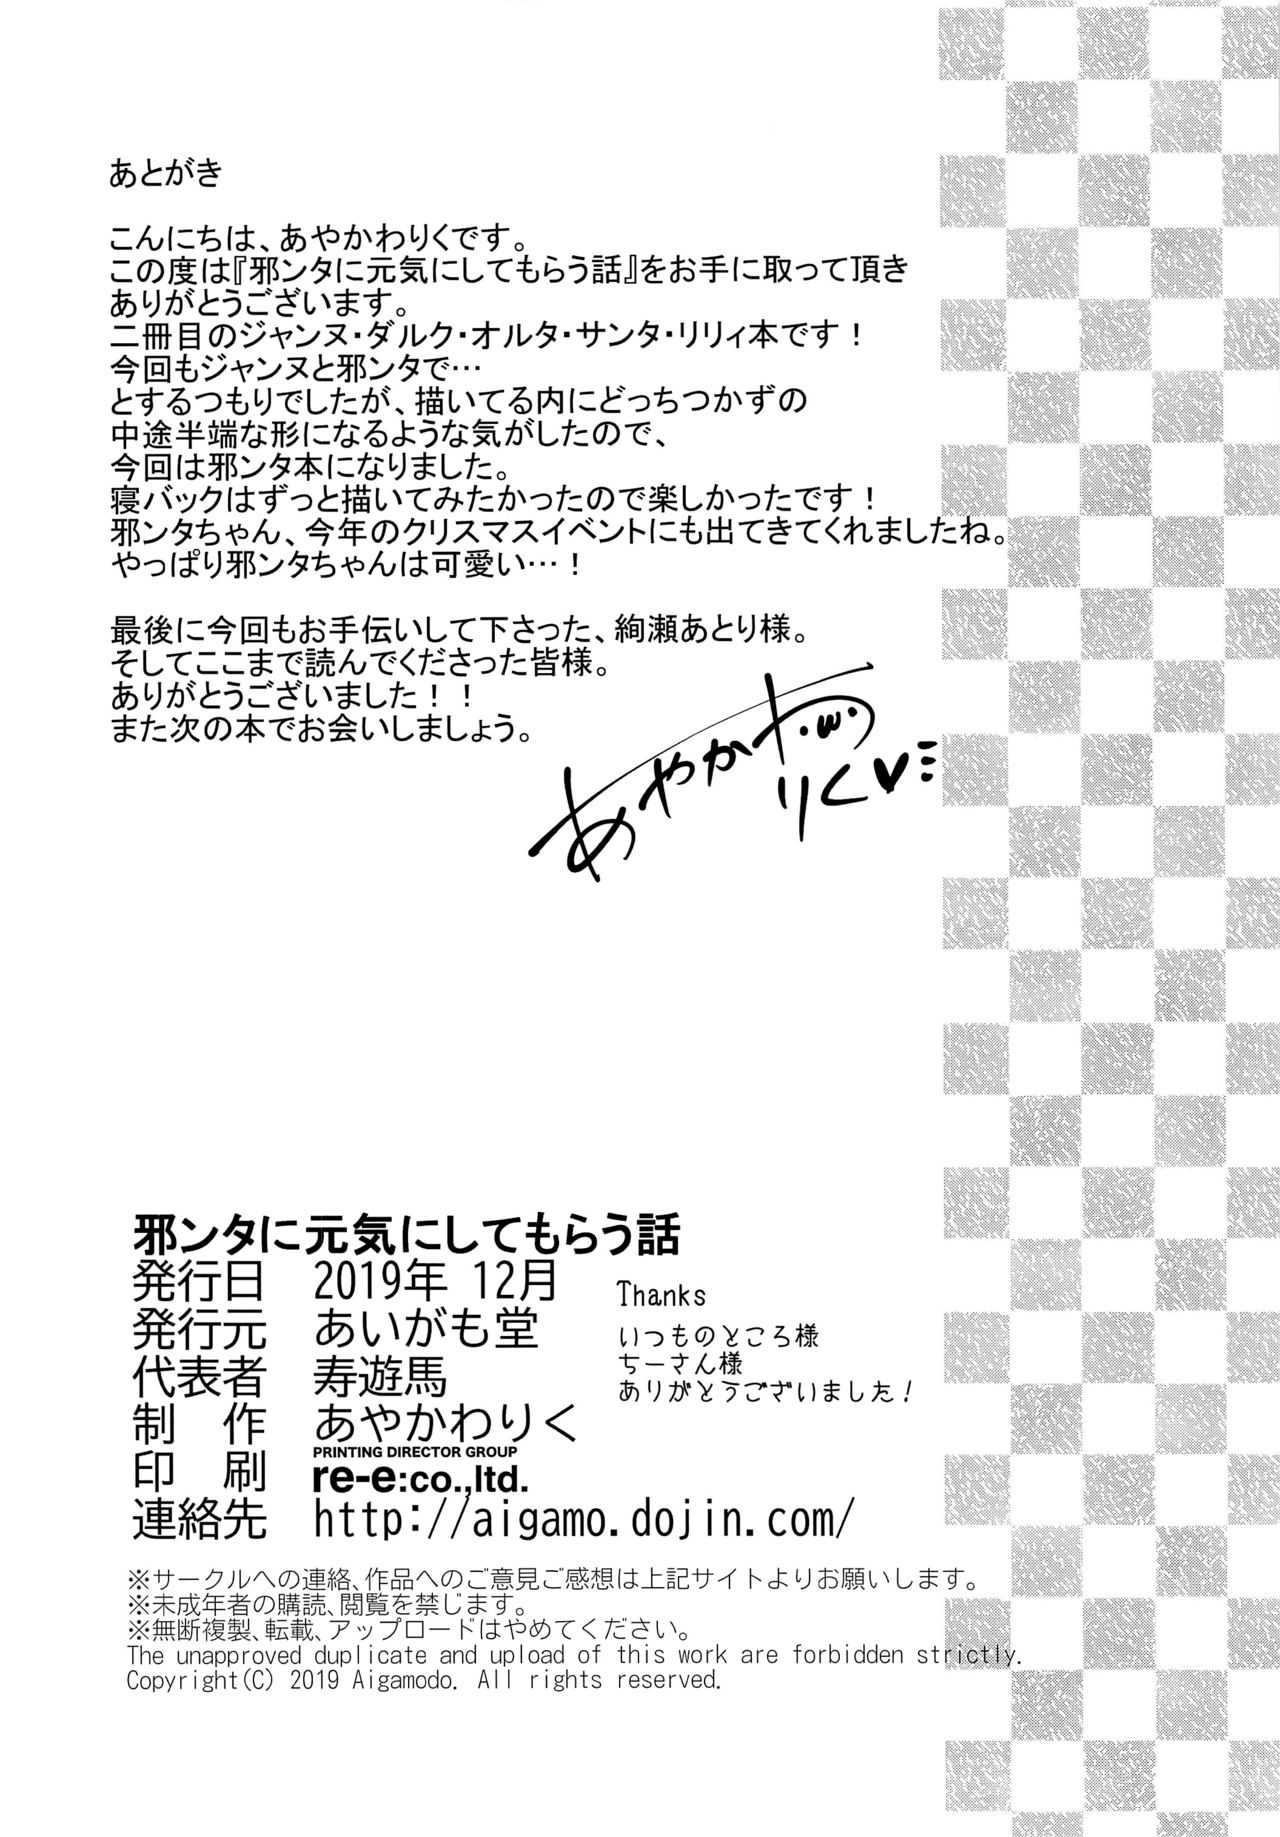 あとがき
こんにちは、あやかわりくです。
この度は『邪ンタに元気にしてもらう話』をお手に取って頂き
ありがとうございます。
二冊目のジャンヌ・ダルク・オルタ・サンタ・リリィ本です！
今回もジャンヌと邪ンタで…
とするつもりでしたが、描いてる内にどっちつかずの
中途半端な形になるような気がしたので、
今回は邪ンタ本になりました。
寝バックはずっと描いてみたかったので楽しかったです！
邪ンタちゃん、今年のクリスマスイベントにも出てきてくれましたね。
やっぱり邪ンタちゃんは可愛い…！
最後に今回もお手伝いして下さった、絢瀬あとり様。
そしてここまで読んでくださった皆様。
ありがとうございました！！
また次の本でお会いしましょう。
あやかわ
りく♥
邪ンタに元気にしてもらう話
発行日 2019年 12月
発行元 あいがも堂
代表者 寿遊馬
制 作 あやかわりく
印 刷 PRINTING DIRECTOR GROUP
re-e:co.,ltd.
連絡先 http://aigamo.dojin.com/
Thanks
いつものところ様
ちーさん様
ありがとうございました！
※サークルへの連絡、作品へのご意見ご感想は上記サイトよりお願いします。
※未成年者の購読、閲覧を禁じます。
※無断複製、転載、アップロードはやめてください。
The unapproved duplicate and upload of this work are forbidden strictly.
Copyright(C) 2019 Aigamodo. All rights reserved.